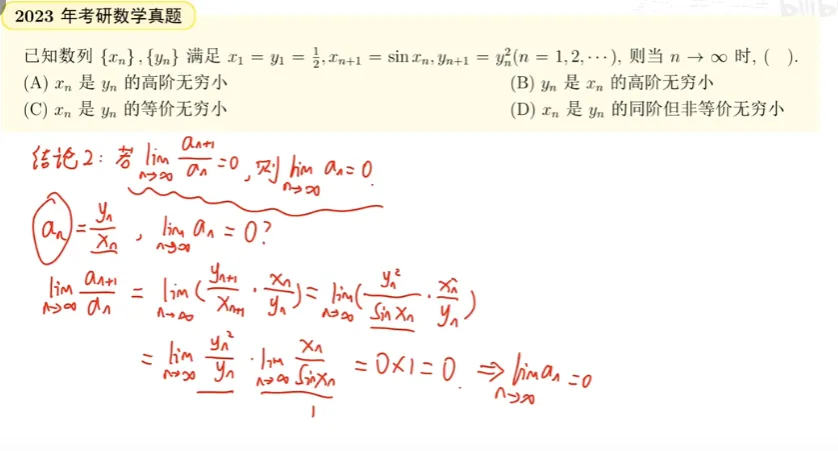 2023 年考研数学真题
已知数列 {xₙ},{yₙ} 满足 x₁ = y₁ = 1/2, xₙ₊₁ = sin xₙ, yₙ₊₁ = yₙ²(n = 1, 2, ⋯), 则当 n → ∞ 时, ( ).
(A) xₙ 是 yₙ 的高阶无穷小 (B) yₙ 是 xₙ 的高阶无穷小
(C) xₙ 是 yₙ 的等价无穷小 (D) xₙ 是 yₙ 的同阶但非等价无穷小
结论2: 若 lim_{n→∞} aₙ₊₁/aₙ = 0, 则 lim_{n→∞} aₙ = 0.
aₙ = yₙ/xₙ, lim_{n→∞} aₙ = 0?
lim_{n→∞} aₙ₊₁/aₙ = lim_{n→∞} (yₙ₊₁/xₙ₊₁ · xₙ/yₙ) = lim_{n→∞} (yₙ²/sin xₙ · xₙ/yₙ)
= lim_{n→∞} yₙ²/yₙ · lim_{n→∞} xₙ/sin xₙ = 0×1 = 0. ⇒ lim_{n→∞} aₙ = 0
1